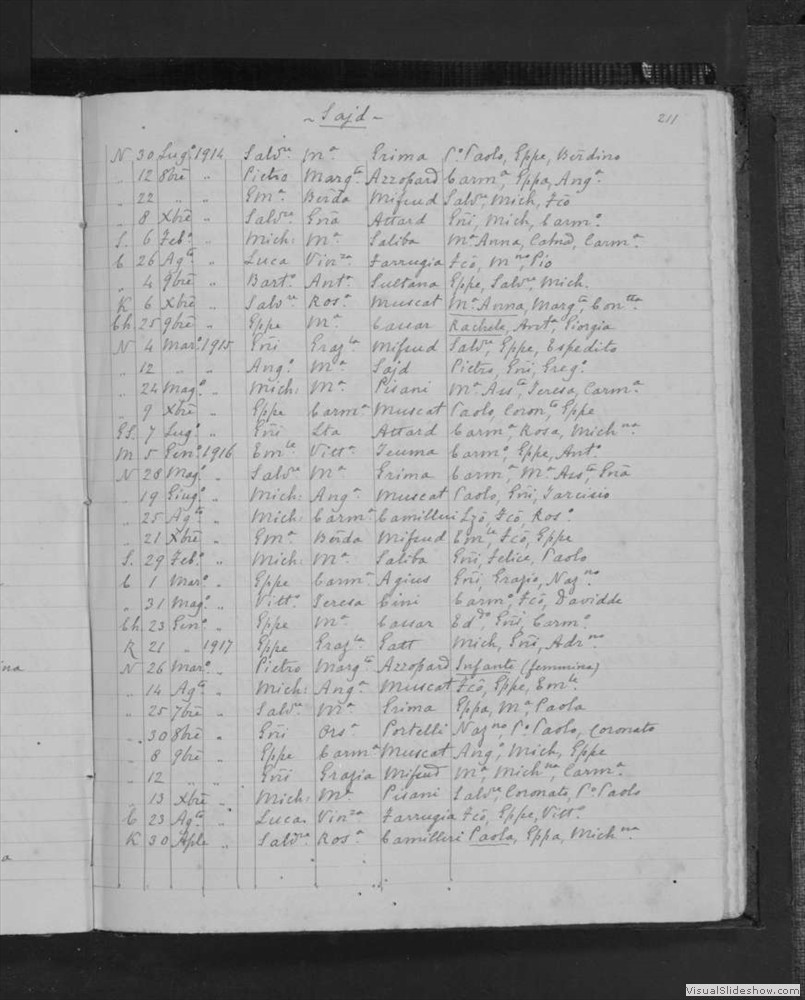 - Sajd -
211
N 30 Lugo. 1914 Salvre Ma Grima Po Paolo, Eppe, Berdino
.. 12 8bre .. Pietro Margta Azzopard Carma, Eppa, Anga
.. 22 .. .. Ema Berda Mifsud Salvre, Mich, Fco
.. 8 Xbre .. Salvre Gna Attard Gni, Mich, Carmo
S. 6 Febo .. Mich: Ma Saliba Ma Anna, Carma
C 26 Agto .. Luca Vinza Farrugia Fco, Mno, Pio
.. 4 9bre .. Barto. Anta Sultana Eppe, Salvre Mich.
K 6 Xbre .. Salvre Rosa Muscat Ma Anna, Margta, Contta
Ch. 25 9bre .. Eppe Ma Cassar Rachele, Anta, Giorgia
N 4 Maro. 1915 Gni Grazta Mifsud Salvre, Eppe, Espedito
.. 12 .. .. Ango. Ma Sajd Pietro, Gni, Grego.
.. 24 Mago. .. Mich: Ma Pisani Ma Assta, Teresa, Carma
.. 9 Xbre .. Eppe Carma Muscat Paolo, Coronto, Eppe
GS. 7 Lugo. .. Gni Lta Attard Carma, Rosa, Michna
M 5 Geno. 1916 Emle Vitta Teuma Carmo, Eppe, Anto
N 28 Mago. .. Salvre Ma Grima Carma, Ma Assta, Gna
.. 19 Giugo. .. Mich: Anga Muscat Paolo, Gni, Tarcisio
.. 25 Agto .. Mich: Carma Camilleri Lzo, Fco, Roso
.. 21 Xbre .. Ema Berda Mifsud Emle, Fco, Eppe
S. 29 Febo .. Mich: Ma Saliba Gni, Felice, Paolo
C 1 Maro. .. Eppe Carma Agius Gni, Grazio, Nazno
.. 31 Mago. .. Vitto Teresa Cini Carmo, Fco, Davidde
Ch. 23 Geno. .. Eppe Ma Cassar Eddo, Gni, Carmo
K 21 .. 1917 Eppe Grazta Gatt Mich, Gni, Adrno
N 26 Maro. .. Pietro Margta Azzopard Infante (femmina)
.. 14 Agto .. Mich: Anga Muscat Fco, Eppe, Emle
.. 25 7bre .. Salvre Ma Grima Eppa, Ma Paola
.. 30 8bre .. Gni Orsa Portelli Nazno, Po Paolo, Coronato
.. 8 9bre .. Eppe Carma Muscat Ango, Mich, Eppe
.. 12 .. .. Gni Grazia Mifsud Ma, Michna, Carma
.. 13 Xbre .. Mich: Ma Pisani Salvre, Coronato, Po Paolo
C 23 Agto .. Luca Vinza Farrugia Fco, Eppe, Vitto
K 30 Aple .. Salvre Rosa Camilleri Paola, Eppa, Michna
VisualSlideshow.com